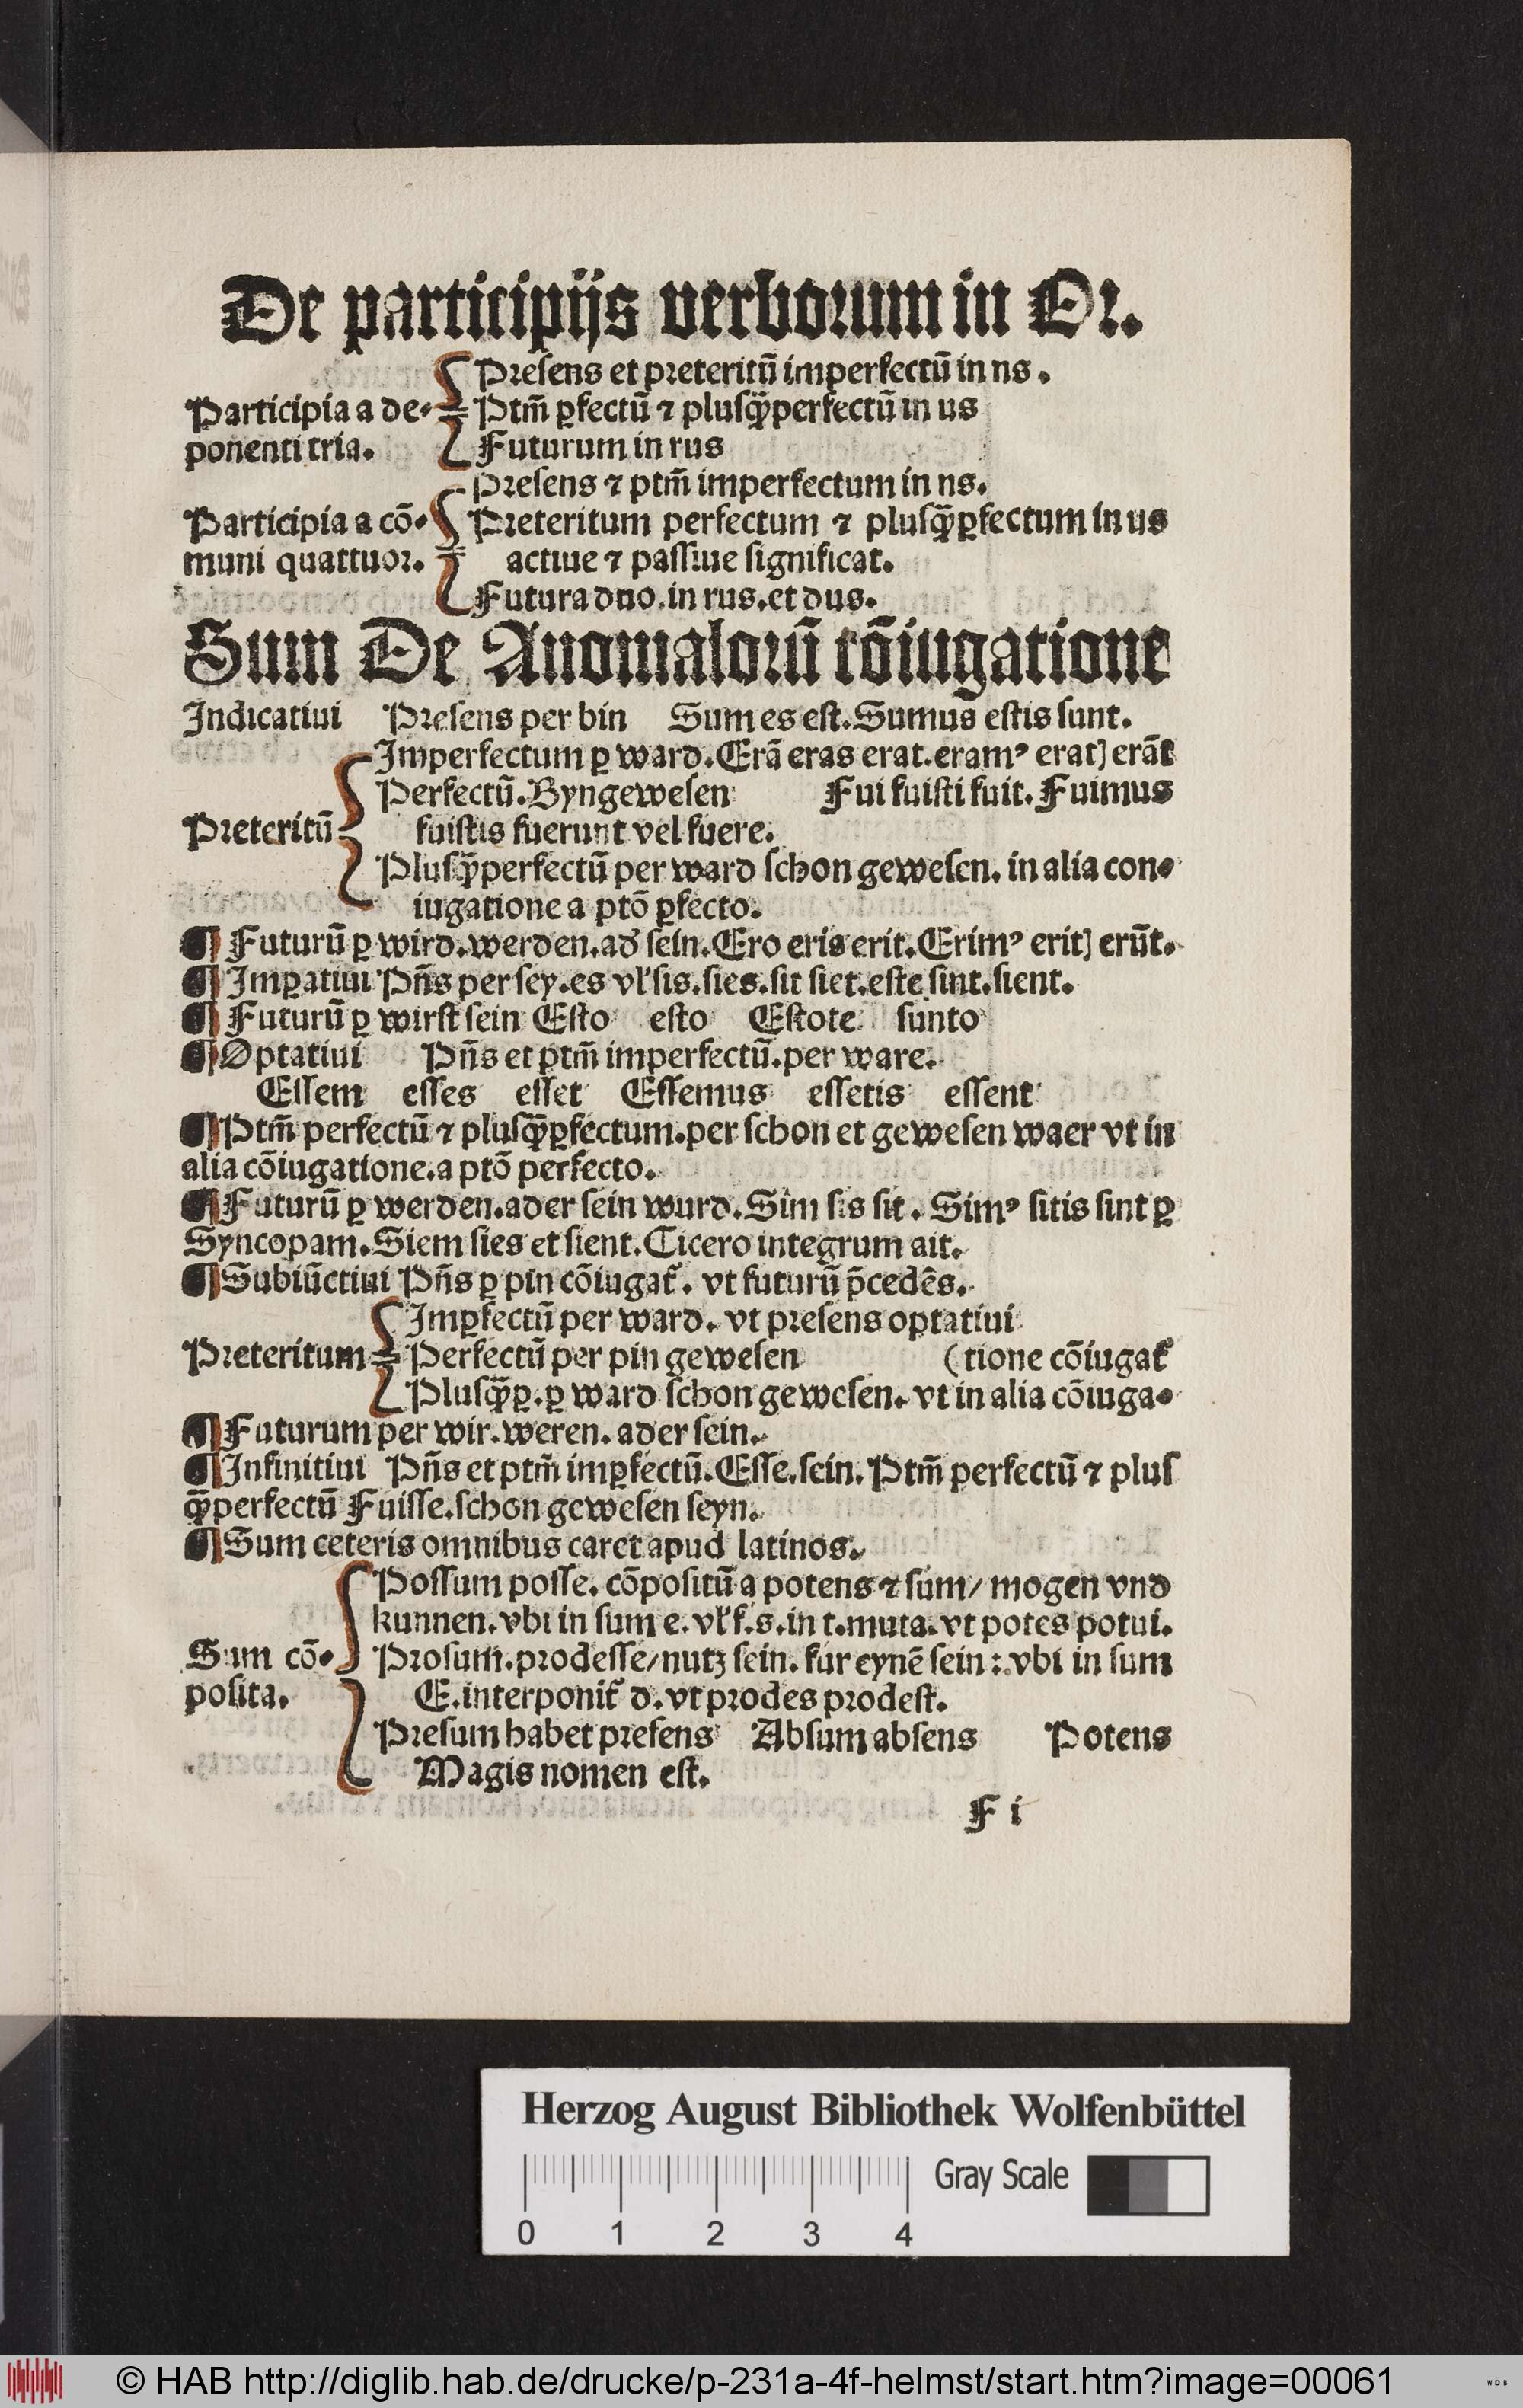 De participijs verborum in Or.
Preſens et preteritū imperfectū in ns.
Participia a de⸗ Ptm̄ ꝑfectū ⁊ pluſꝙ̄perfectū in us
ponenti tria. Futurum in rus
Preſens ⁊ ptm̄ imperfectum in ns.
Participia a cō⸗ Preteritum perfectum ⁊ pluſꝙ̄ꝑfectum in us
muni quattuor. actiue ⁊ paſſiue ſignificat.
Futura duo.in rus.et dus.
Sum De Anomalorū cōiugatione
Indicatiui Preſens per bin Sum es eſt.Sumus eſtis ſunt.
Imperfectum ꝑ ward.Erā eras erat.eramꝰ erat] erāt
Perfectū.Byngeweſen Fui fuiſti fuit.Fuimus
Preteritū fuiſtis fuerunt vel fuere.
Pluſꝙ̄perfectū per ward ſchon geweſen. in alia con⸗
iugatione a ptō ꝑfecto.
¶ Futurū ꝑ wird.werden.ad̕ ſein.Ero eris erit.Erimꝰ erit] erūt.
¶ Imꝑatiui Pn̄s per ſey.es vl̕ ſis.ſies.ſit ſiet.eſte ſint.ſient.
¶ Futurū ꝑ wirſt ſein Eſto eſto Eſtote ſunto
¶ Optatiui Pn̄s et ptm̄ imperfectū.per ware.
Eſſem eſſes eſſet Eſſemus eſſetis eſſent
¶ Ptm̄ perfectū ⁊ pluſꝙ̄ꝑfectum.per ſchon et geweſen waer vt in
alia cōiugatione.a ptō perfecto.
¶ Futurū ꝑ werden.ader ſein wurd.Sim ſis ſit. Simꝰ ſitis ſint ꝑ
Syncopam.Siem ſies et ſient.Cicero integrum ait.
¶ Subiūctiui Pn̄s ꝑ pin cōiugat̉. vt futurū p̄cedēs.
Imꝑfectū per ward. vt preſens optatiui
Preteritum Perfectū per pin geweſen (tione cōiugat̉
Pluſꝙ̄ꝑ.ꝑ ward ſchon geweſen. vt in alia cōiuga⸗
¶ Futurum per wir.weren.ader ſein.
¶ Infinitiui Pn̄s et ptm̄ imꝑfectū.Eſſe.ſein.Ptm̄ perfectū ⁊ pluſ
ꝙ̄perfectū Fuiſſe.ſchon geweſen ſeyn.
¶ Sum ceteris omnibus caret apud latinos.
Poſſum poſſe. cōpoſitū a potens ⁊ ſum/ mogen vnd
kunnen.vbi in ſum e. vl̕ f.s.in t.muta.vt potes potui.
Sum cō⸗ Proſum.prodeſſe/nutz ſein. fur eynē ſein:.vbi in ſum
poſita. E.interponit̉ d.vt prodes prodeſt.
Preſum habet preſens Abſum abſens Potens
Magis nomen eſt.
F i
Herzog August Bibliothek Wolfenbüttel
Gray Scale
0 1 2 3 4
© HAB http://diglib.hab.de/drucke/p-231a-4f-helmst/start.htm?image=00061
WDB